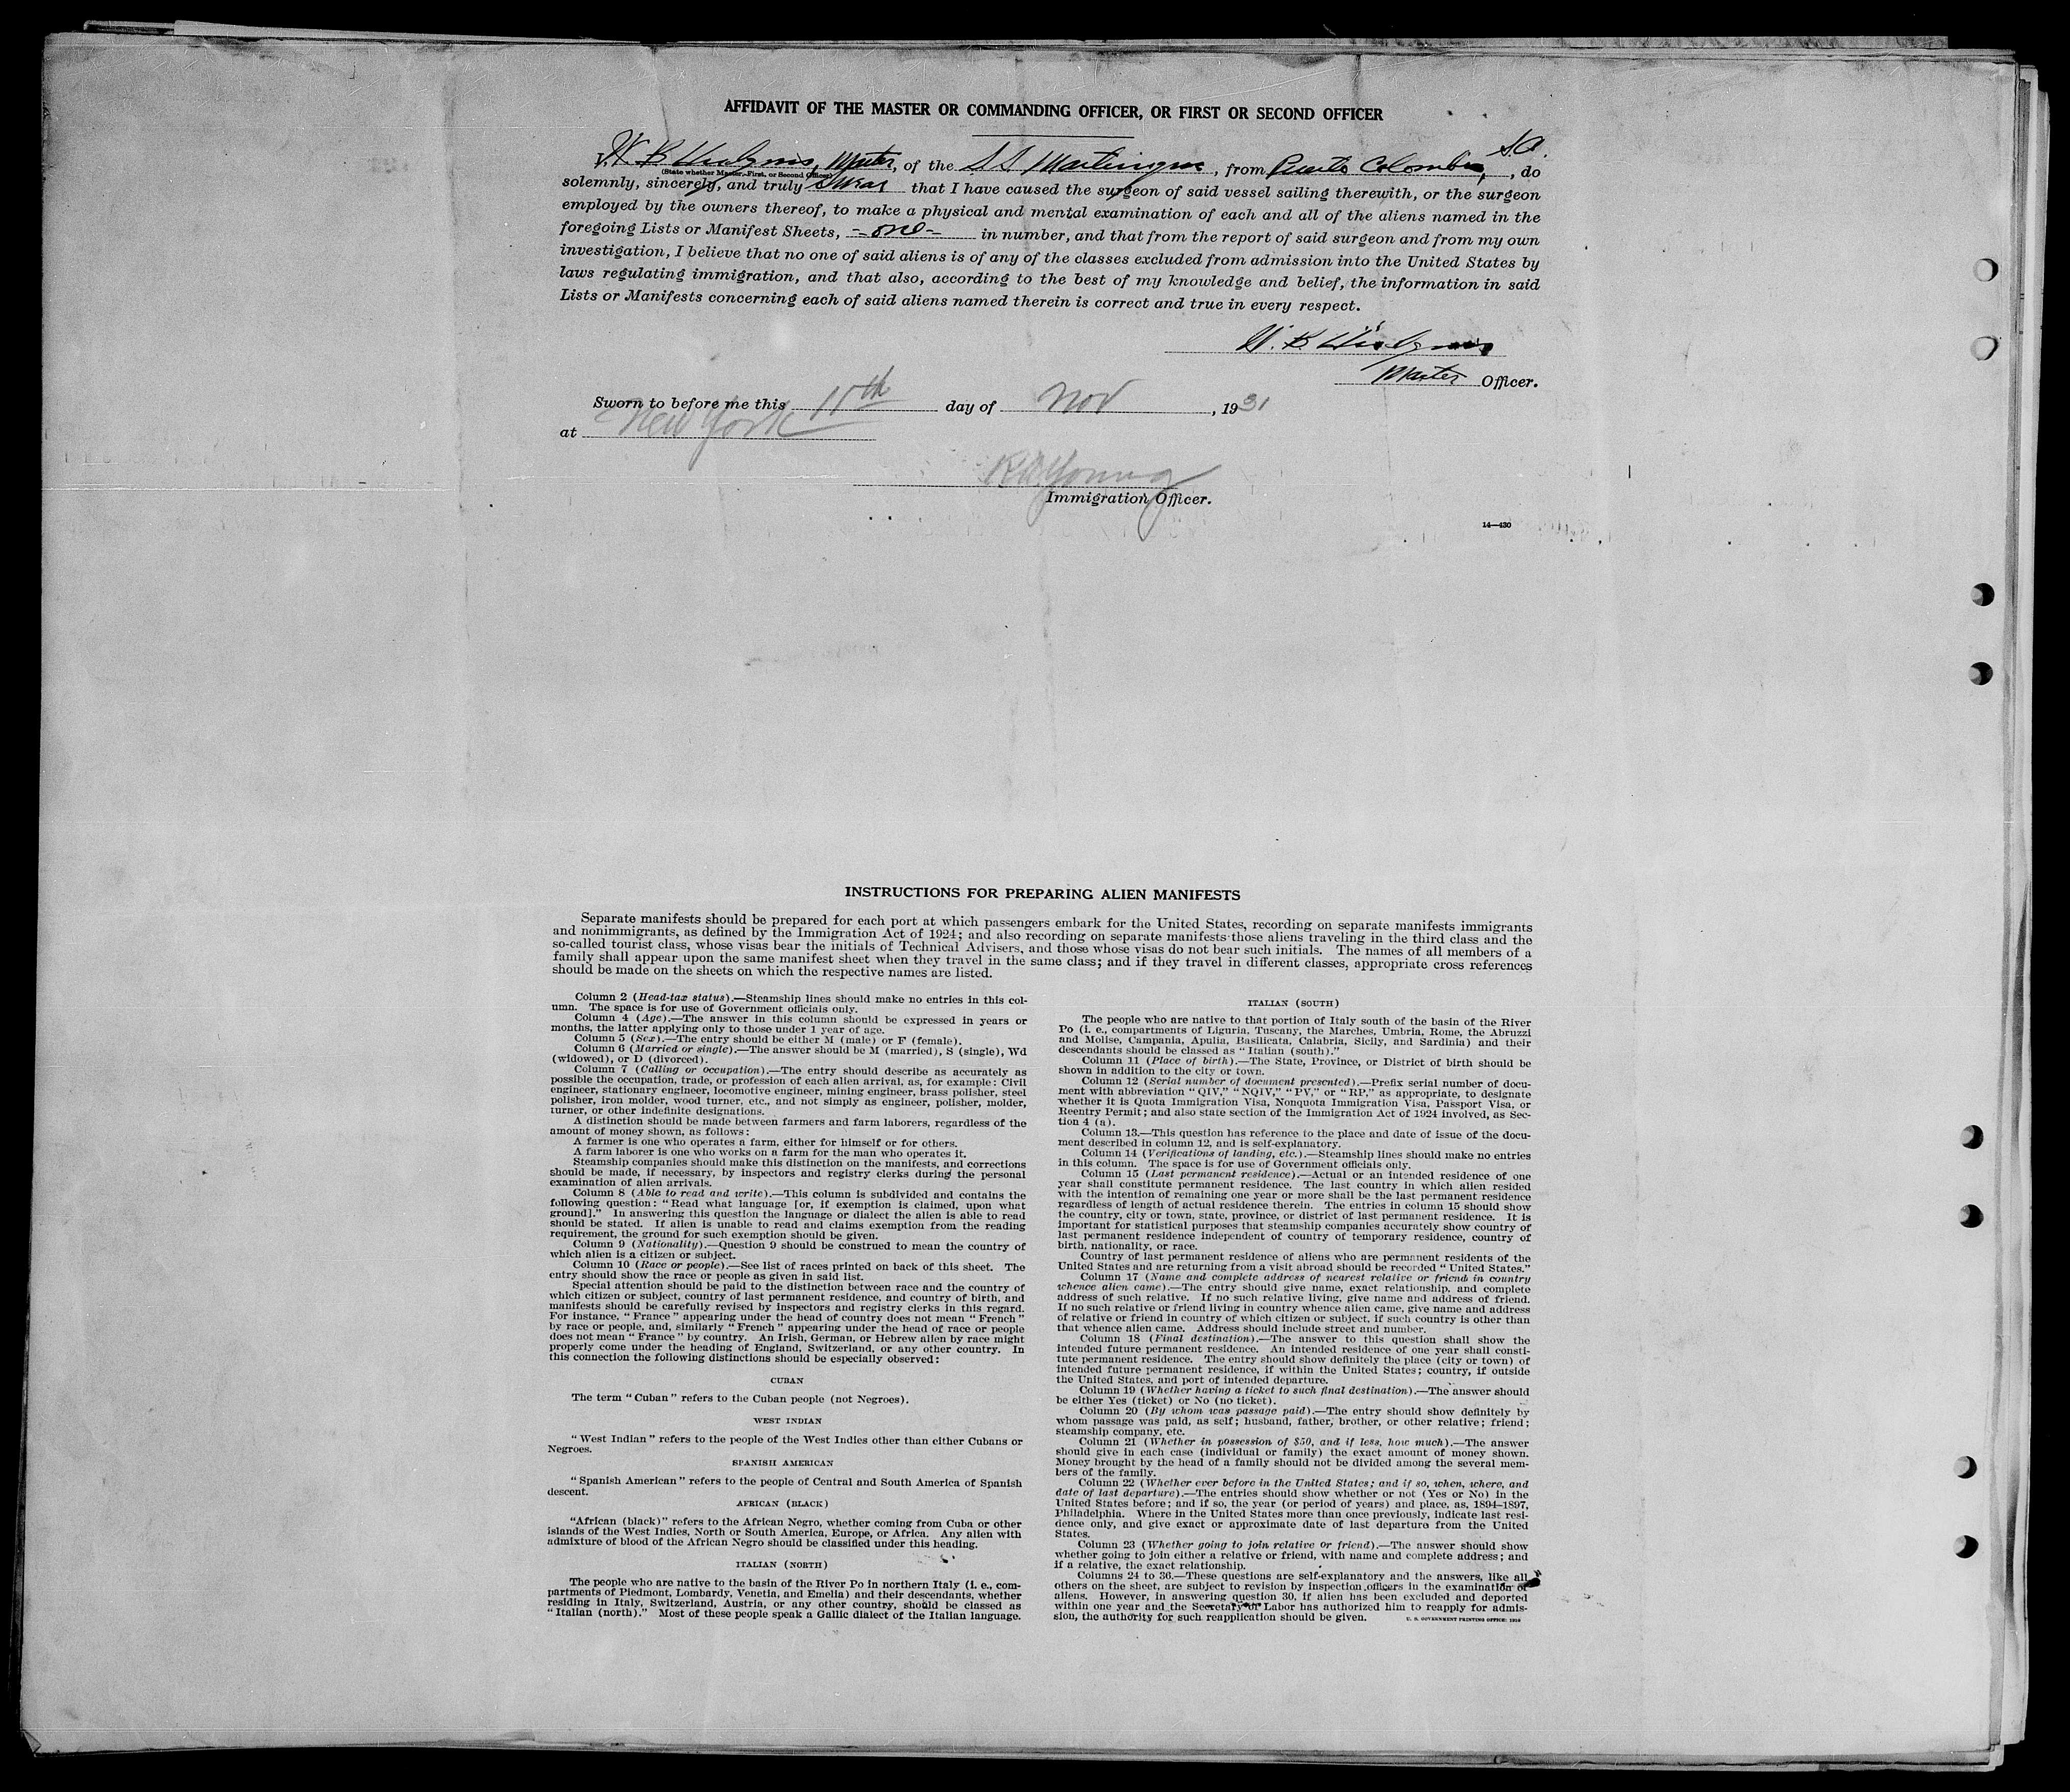 AFFIDAVIT OF THE MASTER OR COMMANDING OFFICER, OR FIRST OR SECOND OFFICER
S.A.
I, W. B. Hudgins, Master, of the SS Martinique, from Puerto Colombia, , do
(State whether Master, First, or Second Officer)
solemnly, sincerely, and truly swear that I have caused the surgeon of said vessel sailing therewith, or the surgeon
employed by the owners thereof, to make a physical and mental examination of each and all of the aliens named in the
foregoing Lists or Manifest Sheets, - one - in number, and that from the report of said surgeon and from my own
investigation, I believe that no one of said aliens is of any of the classes excluded from admission into the United States by
laws regulating immigration, and that also, according to the best of my knowledge and belief, the information in said
Lists or Manifests concerning each of said aliens named therein is correct and true in every respect.
W. B. Hudgins
Master Officer.
Sworn to before me this 11th day of Nov, 1931
at New York
Young
Immigration Officer.
14—430
INSTRUCTIONS FOR PREPARING ALIEN MANIFESTS
Separate manifests should be prepared for each port at which passengers embark for the United States, recording on separate manifests immigrants
and nonimmigrants, as defined by the Immigration Act of 1924; and also recording on separate manifests those aliens traveling in the third class and the
so-called tourist class, whose visas bear the initials of Technical Advisers, and those whose visas do not bear such initials. The names of all members of a
family shall appear upon the same manifest sheet when they travel in the same class; and if they travel in different classes, appropriate cross references
should be made on the sheets on which the respective names are listed.
Column 2 (Head-tax status).—Steamship lines should make no entries in this col-
umn. The space is for use of Government officials only.
Column 4 (Age).—The answer in this column should be expressed in years or
months, the latter applying only to those under 1 year of age.
Column 5 (Sex).—The entry should be either M (male) or F (female).
Column 6 (Married or single).—The answer should be M (married), S (single), Wd
(widowed), or D (divorced).
Column 7 (Calling or occupation).—The entry should describe as accurately as
possible the occupation, trade, or profession of each alien arrival, as, for example: Civil
engineer, stationary engineer, locomotive engineer, mining engineer, brass polisher, steel
polisher, iron molder, wood turner, etc., and not simply as engineer, polisher, molder,
turner, or other indefinite designations.
A distinction should be made between farmers and farm laborers, regardless of the
amount of money shown, as follows:
A farmer is one who operates a farm, either for himself or for others.
A farm laborer is one who works on a farm for the man who operates it.
Steamship companies should make this distinction on the manifests, and corrections
should be made, if necessary, by inspectors and registry clerks during the personal
examination of alien arrivals.
Column 8 (Able to read and write).—This column is subdivided and contains the
following question: “Read what language [or, if exemption is claimed, upon what
ground].” In answering this question the language or dialect the alien is able to read
should be stated. If alien is unable to read and claims exemption from the reading
requirement, the ground for such exemption should be given.
Column 9 (Nationality).—Question 9 should be construed to mean the country of
which alien is a citizen or subject.
Column 10 (Race or people).—See list of races printed on back of this sheet. The
entry should show the race or people as given in said list.
Special attention should be paid to the distinction between race and the country of
which citizen or subject, country of last permanent residence, and country of birth, and
manifests should be carefully revised by inspectors and registry clerks in this regard.
For instance, “France” appearing under the head of country does not mean “French”
by race or people, and, similarly “French” appearing under the head of race or people
does not mean “France” by country. An Irish, German, or Hebrew alien by race might
properly come under the heading of England, Switzerland, or any other country. In
this connection the following distinctions should be especially observed:
CUBAN
The term “Cuban” refers to the Cuban people (not Negroes).
WEST INDIAN
“West Indian” refers to the people of the West Indies other than either Cubans or
Negroes.
SPANISH AMERICAN
“Spanish American” refers to the people of Central and South America of Spanish
descent.
AFRICAN (BLACK)
“African (black)” refers to the African Negro, whether coming from Cuba or other
islands of the West Indies, North or South America, Europe, or Africa. Any alien with
admixture of blood of the African Negro should be classified under this heading.
ITALIAN (NORTH)
The people who are native to the basin of the River Po in northern Italy (i. e., com-
partments of Piedmont, Lombardy, Venetia, and Emelia) and their descendants, whether
residing in Italy, Switzerland, Austria, or any other country, should be classed as
“Italian (north).” Most of these people speak a Gallic dialect of the Italian language.
ITALIAN (SOUTH)
The people who are native to that portion of Italy south of the basin of the River
Po (i. e., compartments of Liguria, Tuscany, the Marches, Umbria, Rome, the Abruzzi
and Molise, Campania, Apulia, Basilicata, Calabria, Sicily, and Sardinia) and their
descendants should be classed as “Italian (south).”
Column 11 (Place of birth).—The State, Province, or District of birth should be
shown in addition to the city or town.
Column 12 (Serial number of document presented).—Prefix serial number of docu-
ment with abbreviation “QIV,” “NQIV,” “PV,” or “RP,” as appropriate, to designate
whether it is Quota Immigration Visa, Nonquota Immigration Visa, Passport Visa, or
Reentry Permit; and also state section of the Immigration Act of 1924 involved, as Sec-
tion 4 (a).
Column 13.—This question has reference to the place and date of issue of the docu-
ment described in column 12, and is self-explanatory.
Column 14 (Verifications of landing, etc.).—Steamship lines should make no entries
in this column. The space is for use of Government officials only.
Column 15 (Last permanent residence).—Actual or an intended residence of one
year shall constitute permanent residence. The last country in which alien resided
with the intention of remaining one year or more shall be the last permanent residence
regardless of length of actual residence therein. The entries in column 15 should show
the country, city or town, state, province, or district of last permanent residence. It is
important for statistical purposes that steamship companies accurately show country of
last permanent residence independent of country of temporary residence, country of
birth, nationality, or race.
Country of last permanent residence of aliens who are permanent residents of the
United States and are returning from a visit abroad should be recorded “United States.”
Column 17 (Name and complete address of nearest relative or friend in country
whence alien came).—The entry should give name, exact relationship, and complete
address of such relative. If no such relative living, give name and address of friend.
If no such relative or friend living in country whence alien came, give name and address
of relative or friend in country of which citizen or subject, if such country is other than
that whence alien came. Address should include street and number.
Column 18 (Final destination).—The answer to this question shall show the
intended future permanent residence. An intended residence of one year shall consti-
tute permanent residence. The entry should show definitely the place (city or town) of
intended future permanent residence, if within the United States; country, if outside
the United States, and port of intended departure.
Column 19 (Whether having a ticket to such final destination).—The answer should
be either Yes (ticket) or No (no ticket).
Column 20 (By whom was passage paid).—The entry should show definitely by
whom passage was paid, as self; husband, father, brother, or other relative; friend;
steamship company, etc.
Column 21 (Whether in possession of $50, and if less, how much).—The answer
should give in each case (individual or family) the exact amount of money shown.
Money brought by the head of a family should not be divided among the several mem-
bers of the family.
Column 22 (Whether ever before in the United States; and if so, when, where, and
date of last departure).—The entries should show whether or not (Yes or No) in the
United States before; and if so, the year (or period of years) and place, as, 1894–1897,
Philadelphia. Where in the United States more than once previously, indicate last resi-
dence only, and give exact or approximate date of last departure from the United
States.
Column 23 (Whether going to join relative or friend).—The answer should show
whether going to join either a relative or friend, with name and complete address; and
if a relative, the exact relationship.
Columns 24 to 36.—These questions are self-explanatory and the answers, like all
others on the sheet, are subject to revision by inspection officers in the examination of
aliens. However, in answering question 30, if alien has been excluded and deported
within one year and the Secretary of Labor has authorized him to reapply for admis-
sion, the authority for such reapplication should be given.
U. S. GOVERNMENT PRINTING OFFICE: